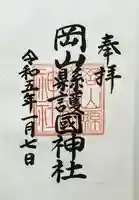 奉拝
岡山縣護國神社
令和五年一月七日